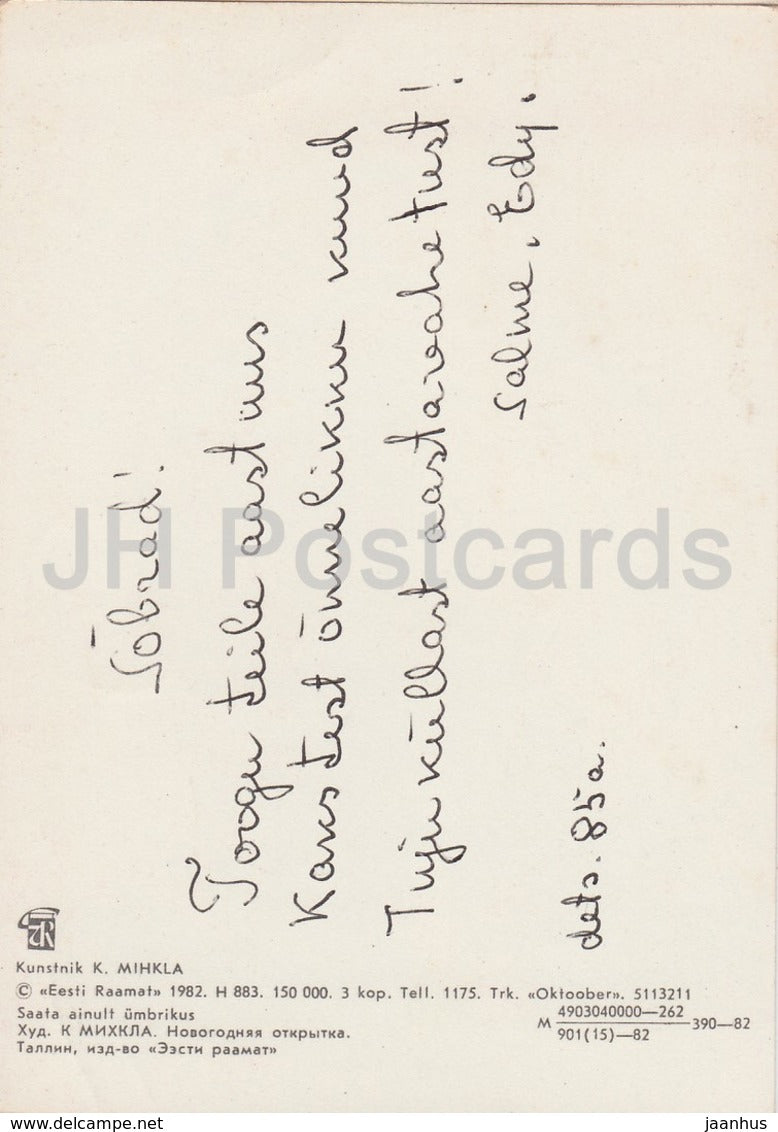 Sõbrad!
Toogu teile aast uus
Kaksteist õnnelikku kuud
Tuju küllast aastavahetust!
Salme, Edy.
dets. 85a.
JH Postcards
Kunstnik K. MIHKLA
© «Eesti Raamat» 1982. H 883. 150 000. 3 kop. Tell. 1175. Trk. «Oktoober». 5113211
Saata ainult ümbrikus
Худ. К МИХКЛА. Новогодняя открытка.
Таллин, изд-во «Ээсти раамат»
М 4903040000—262
901(15)—82 390—82
www.delcampe.net
jaanhus